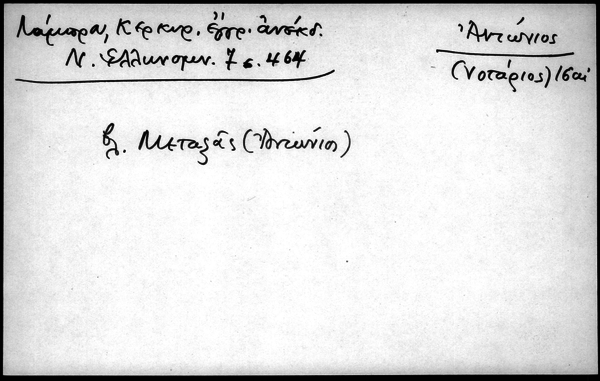 Λάμπρου, Κερκυρ. ἔγγρ. ἀνέκδ.
Ν. Ἑλληνομν. 7 σ. 464
Ἀντώνιος
(νοτάριος) 16 αἰ
βλ. Μεταξᾶς (Ἀντώνιος)